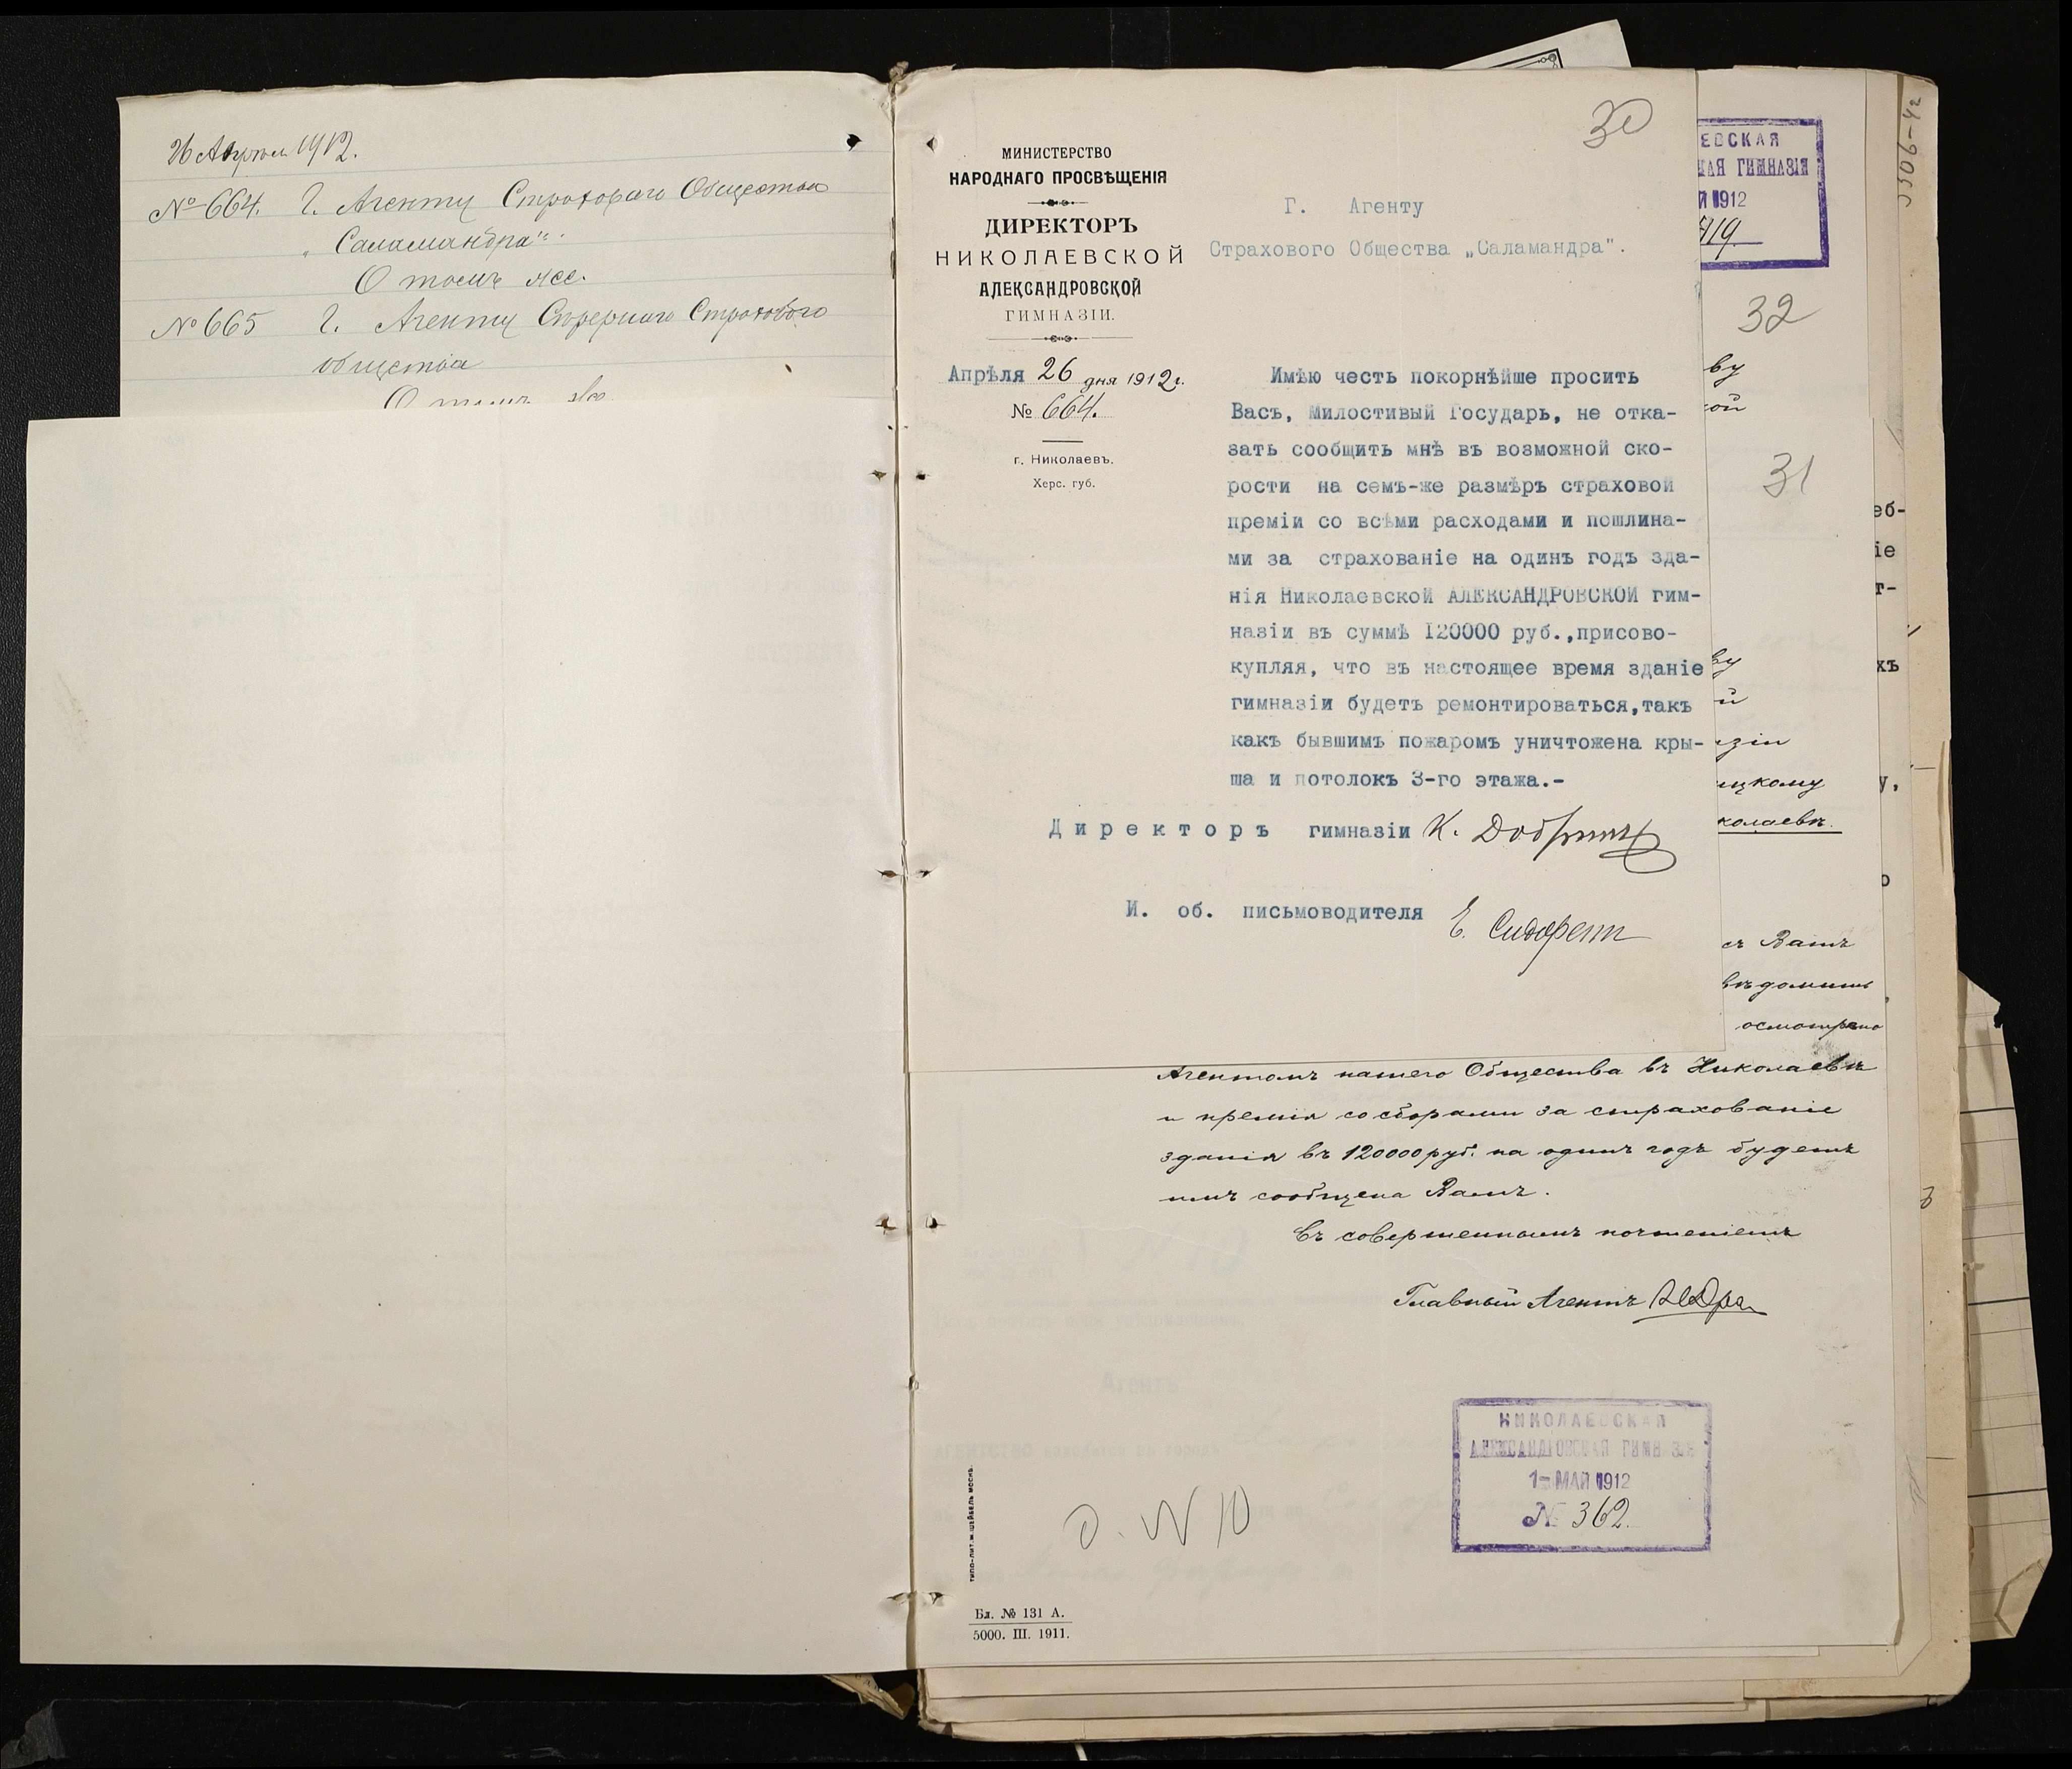 26 Апрѣля 1912.
№ 664. Г. Агенту Страховаго Общества
„Саламандра".
О томъ же.
№ 665 Г. Агенту Сѣвернаго Страховаго
общества
О томъ же
30
МИНИСТЕРСТВО
НАРОДНАГО ПРОСВѢЩЕНІЯ
ДИРЕКТОРЪ
НИКОЛАЕВСКОЙ
АЛЕКСАНДРОВСКОЙ
ГИМНАЗІИ.
Апрѣля 26 дня 1912 г.
№ 664.
г. Николаевъ.
Херс. губ.
Г. Агенту
Страхового Общества „Саламандра".
Имѣю честь покорнѣйше просить
Васъ, Милостивый Государь, не отка-
зать сообщить мнѣ въ возможной ско-
рости на семъ-же размѣръ страховой
преміи со всѣми расходами и пошлина-
ми за страхованіе на одинъ годъ зда-
нія Николаевской АЛЕКСАНДРОВСКОЙ гим-
назіи въ суммѣ 120000 руб.,присово-
купляя, что въ настоящее время зданіе
гимназіи будетъ ремонтироваться,такъ
какъ бывшимъ пожаромъ уничтожена кры-
ша и потолокъ 3-го этажа.-
Директоръ гимназіи К.
И. об. письмоводителя Е.
ЕВСКАЯ
АЯ ГИМНАЗІЯ
Й 1912
919
32
ву
ой
31
ву
й
азіи
ицкому
колаевѣ.
съ Вамъ
вѣдомить
осмотрено
Агентомъ нашего Общества въ Николаевѣ
и премія со сборами за страхованіе
зданія въ 120000 руб. на одинъ годъ будетъ
имъ сообщена Вамъ.
Съ совершеннымъ почтеніемъ
Главный Агентъ
НИКОЛАЕВСКАЯ
АЛЕКСАНДРОВСКАЯ ГИМНАЗІЯ
1- МАЙ 1912
№ 362.
д. № 10
Бл. № 131 А.
5000. III. 1911.
еб-
іе
т-
хъ
у,
о